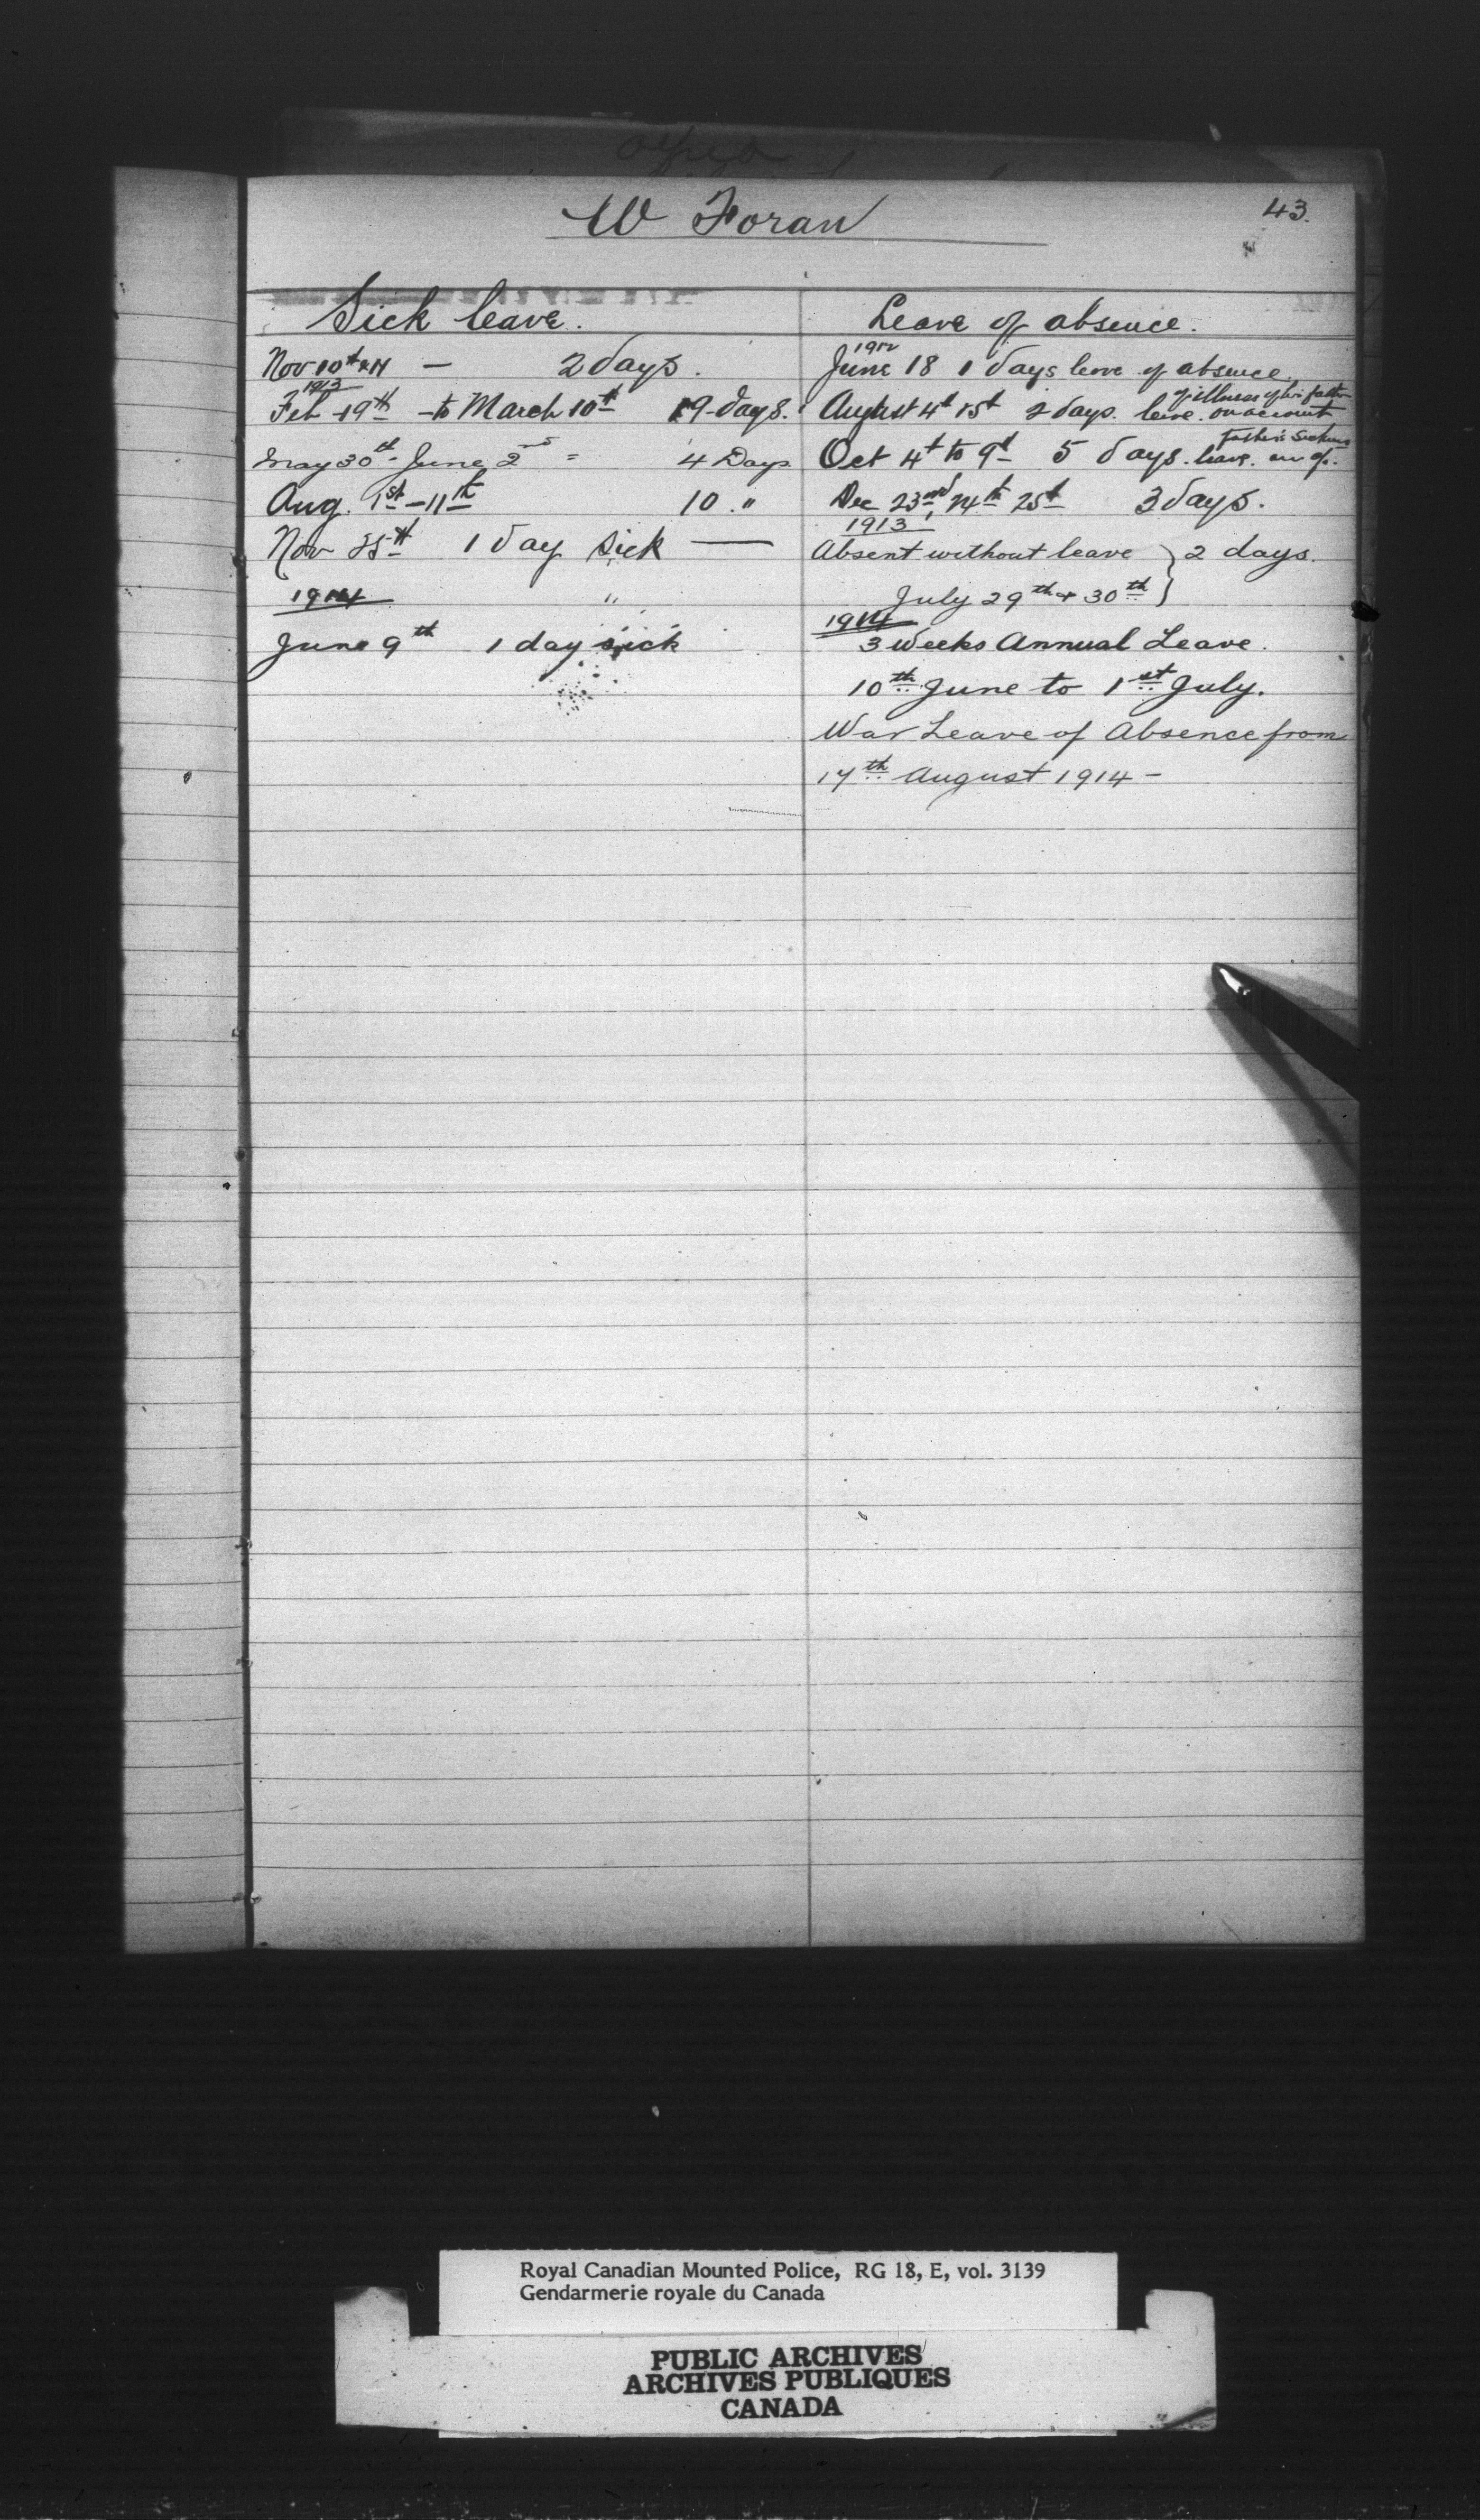 W Foran
43.
Sick leave.
Nov 10th & 11 — 2 days.
1913
Feb 19th to March 10th 19 days.
May 30th - June 2nd = 4 Days
Aug. 1st - 11th 10 "
Nov 25th 1 day sick —
1914 "
June 9th 1 day sick
Leave of absence.
1912
June 18 1 days leave of absence.
of illness of his father
August 4th 15th 2 days. leave. on account
father's sickness
Oct 4th to 9th 5 days. leave.
Dec 23rd, 24th 25th 3 days.
1913
Absent without leave } 2 days.
July 29th & 30th }
1914
3 Weeks Annual Leave.
10th June to 1st July.
War Leave of Absence from
17th August 1914 -
Royal Canadian Mounted Police, RG 18, E, vol. 3139
Gendarmerie royale du Canada
PUBLIC ARCHIVES
ARCHIVES PUBLIQUES
CANADA